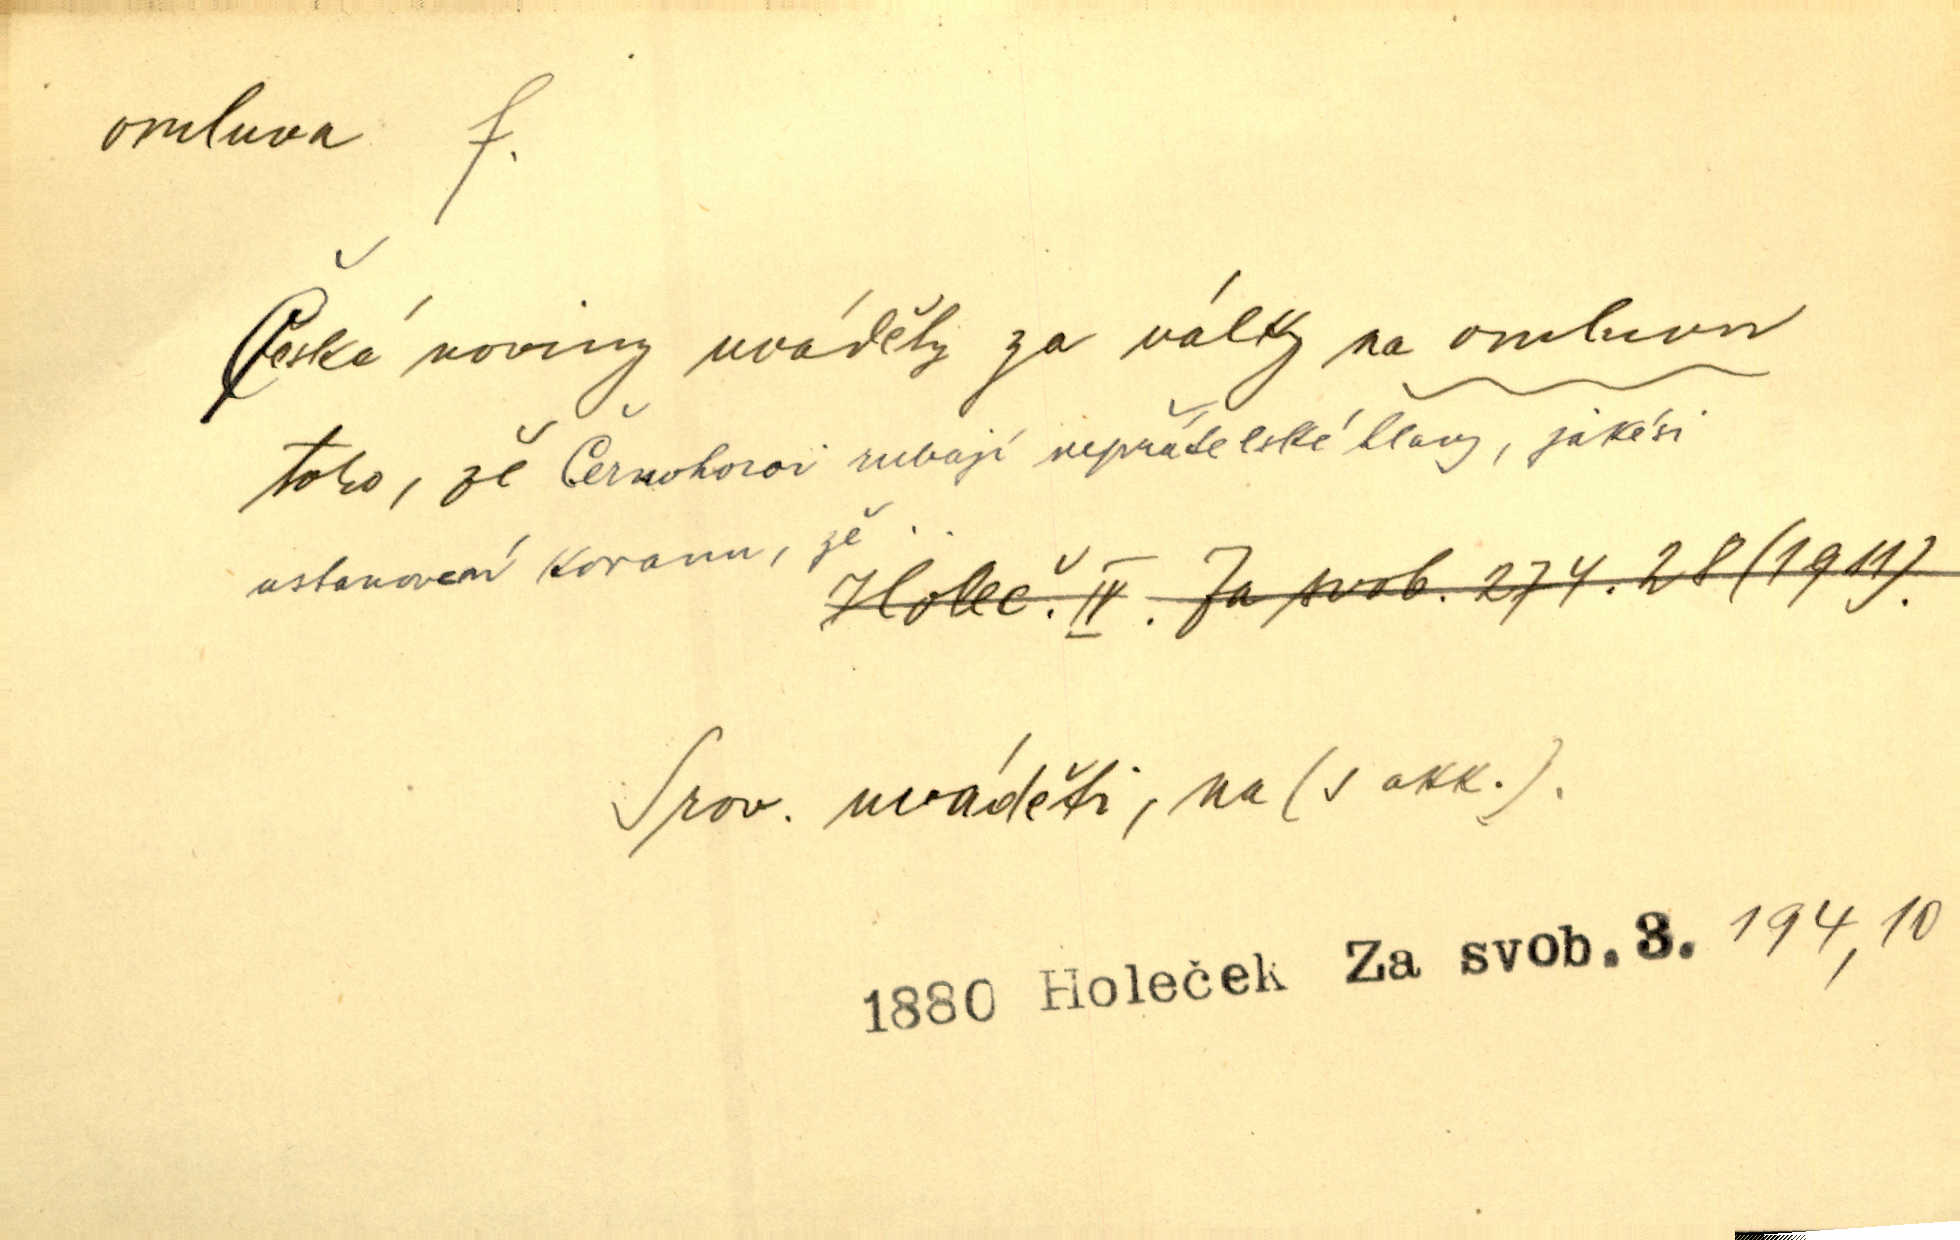 omluva f.
Česká noviny uváděly za války na omluvu
toho, že Černohorci rubají nepřátelské hlavy, jakési
ustanovení koranu, že . .
Holeč. IV. Za svob. 274. 28 (1911).
Srov. uváděti, na (s akk.).
1880 Holeček Za svob. 3. 194,10